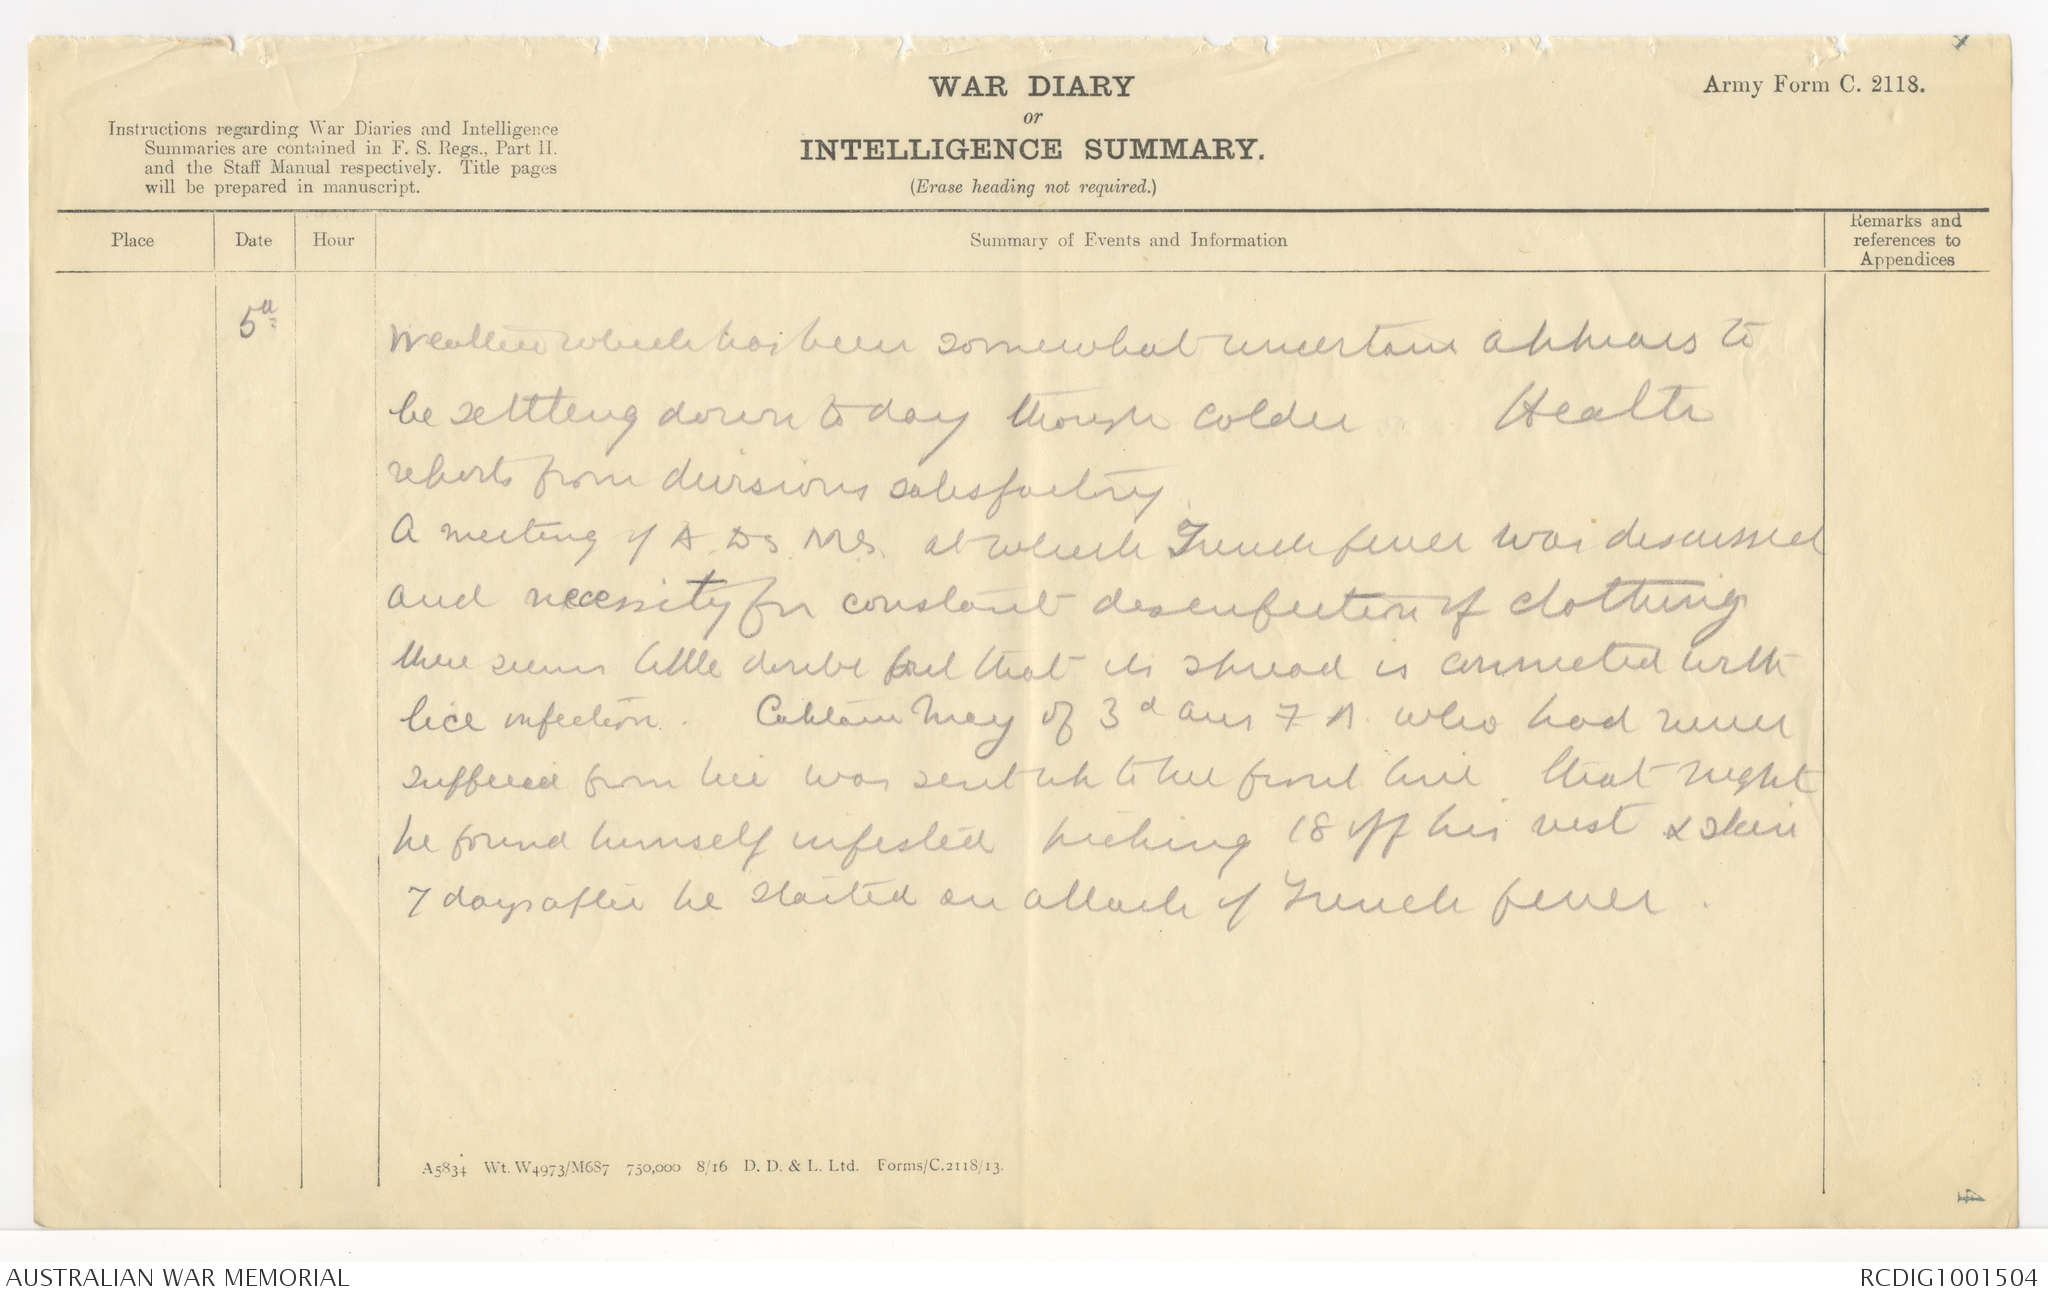 WAR DIARY
or
INTELLIGENCE SUMMARY.
(Erase heading not required.)
Army Form C. 2118.
Instructions regarding War Diaries and Intelligence
Summaries are contained in F. S. Regs., Part II.
and the Staff Manual respectively. Title pages
will be prepared in manuscript.
Place
Date
Hour
Summary of Events and Information
Remarks and
references to
Appendices
5th
Weather which has been somewhat uncertain appears to
be settling down to day though colder Health
reports from divisions satisfactory.
A meeting of A. Ds. M.S. at which Trench fever was discussed
and necessity for constant desenfection of clothing
there seems little doubt but that its spread is connected with
lice infection. Captain May of 3d Aus F A. who had never
suffered from lice was sent up to the front line that night
he found himself infested picking 18 off his vest & skin
7 days after he started an attack of Trench fever.
A5834 Wt. W4973/M687 750,000 8/16 D. D. & L. Ltd. Forms/C.2118/13.
4
AUSTRALIAN WAR MEMORIAL
RCDIG1001504